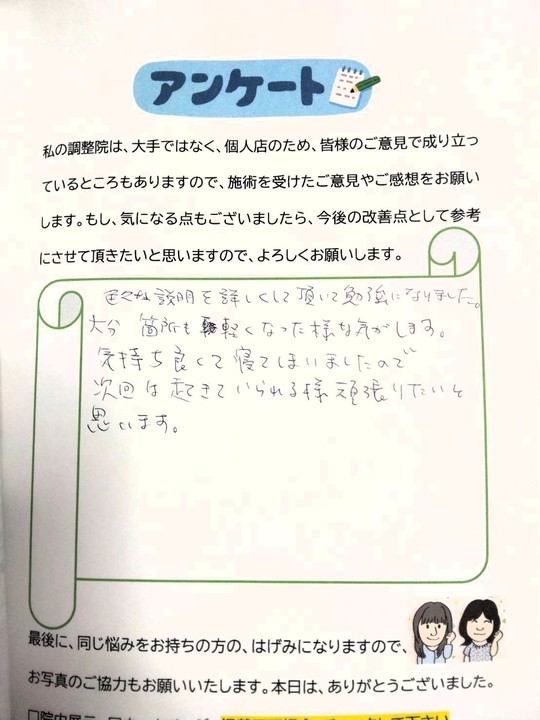 アンケート
私の調整院は、大手ではなく、個人店のため、皆様のご意見で成り立っ
ているところもありますので、施術を受けたご意見やご感想をお願い
します。もし、気になる点もございましたら、今後の改善点として参考
にさせて頂きたいと思いますので、よろしくお願いします。
色々な説明を詳しくして頂いて勉強になりました。
大分 箇所も軽くなった様な気がします。
気持ち良くて寝てしまいましたので
次回は起きていられる様頑張りたいと
思います。
最後に、同じ悩みをお持ちの方の、はげみになりますので、
お写真のご協力もお願いいたします。本日は、ありがとうございました。